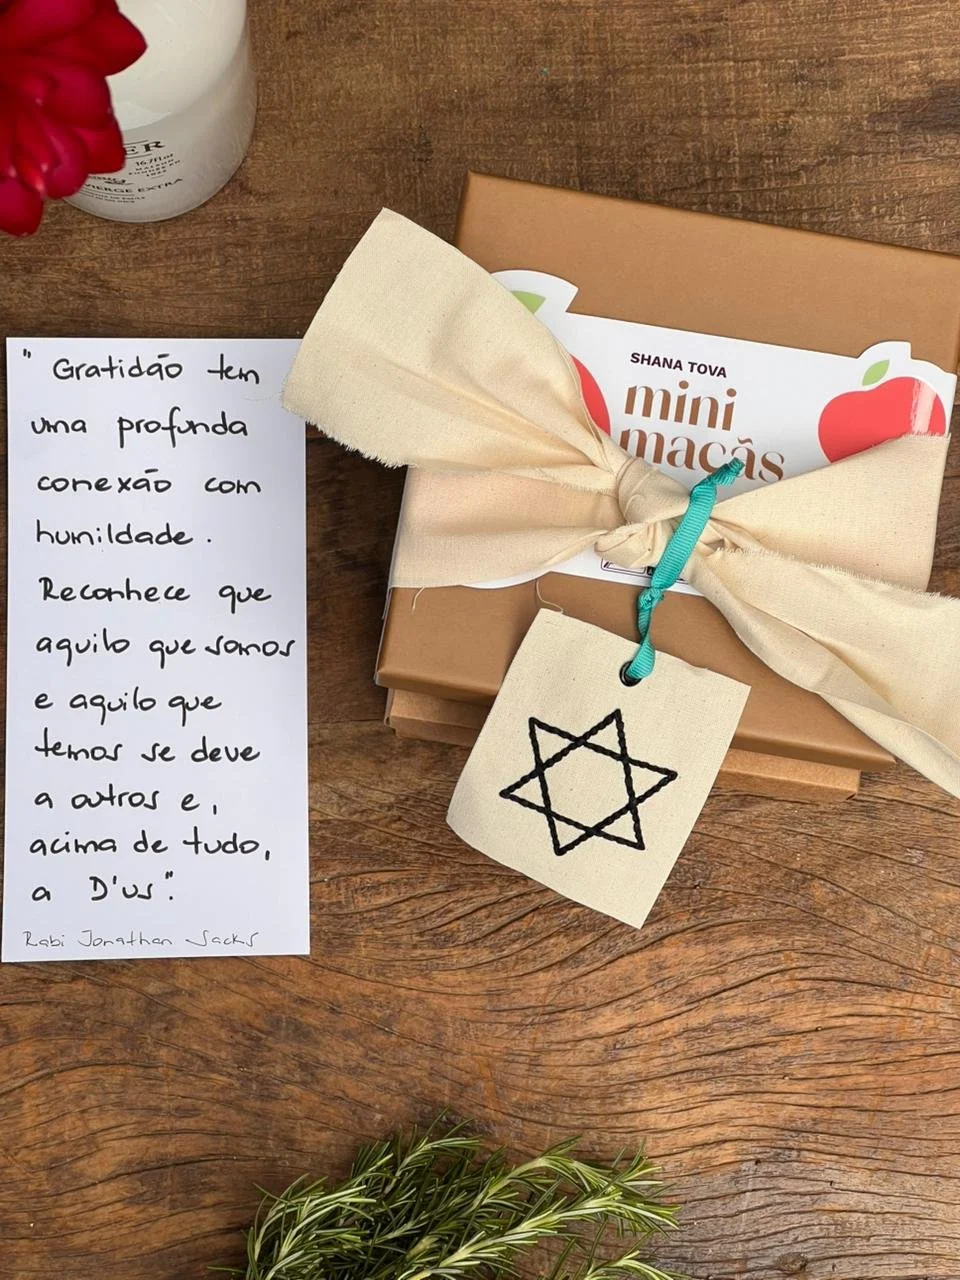 ER
16.7fl.oz
MAISON
FONDÉE EN
VIERGE EXTRA
SHANA TOVA
mini
maçãs
" Gratidão tem
uma profunda
conexão com
humildade.
Reconhece que
aquilo que somos
e aquilo que
temos se deve
a outros e,
acima de tudo,
a D'us".
Rabi Jonathan Sacks